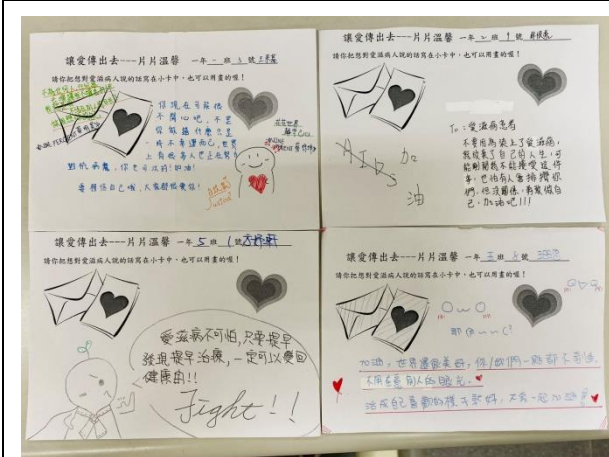 讓愛傳出去---片片溫馨 一年 一 班 3 號
請你把想對愛滋病人說的話寫在小卡中，也可以用畫的喔！
你現在可能很
不開心吧，不是
你做錯什麼只是
一時不幸運而已，世界
上有很多人也正在努力
對抗病毒，你也可以的!加油!
要相信自己哦，大家都祝賀你!
讓愛傳出去---片片溫馨 一年 2 班 9 號
請你把想對愛滋病人說的話寫在小卡中，也可以用畫的喔！
To：愛滋病患者
不要因為染上了愛滋病，
就放棄了自己的人生，可
能剛開始不能接受這件
事，也怕有人會排擠你
們，但沒關係，勇敢做自
己，加油吧!!!
AIDS
加
油
讓愛傳出去---片片溫馨 一年 5 班 1 號
請你把想對愛滋病人說的話寫在小卡中，也可以用畫的喔！
愛滋病不可怕，只要提早
發現提早治療，一定可以變回
健康的!!
Fight!!
讓愛傳出去---片片溫馨 一年 五 班 3 號
請你把想對愛滋病人說的話寫在小卡中，也可以用畫的喔！
加油，世界還很美好，你/妳們一點都不可怕，
不用在意別人的眼光。
活成自己喜歡的樣子就好，大家一起加油